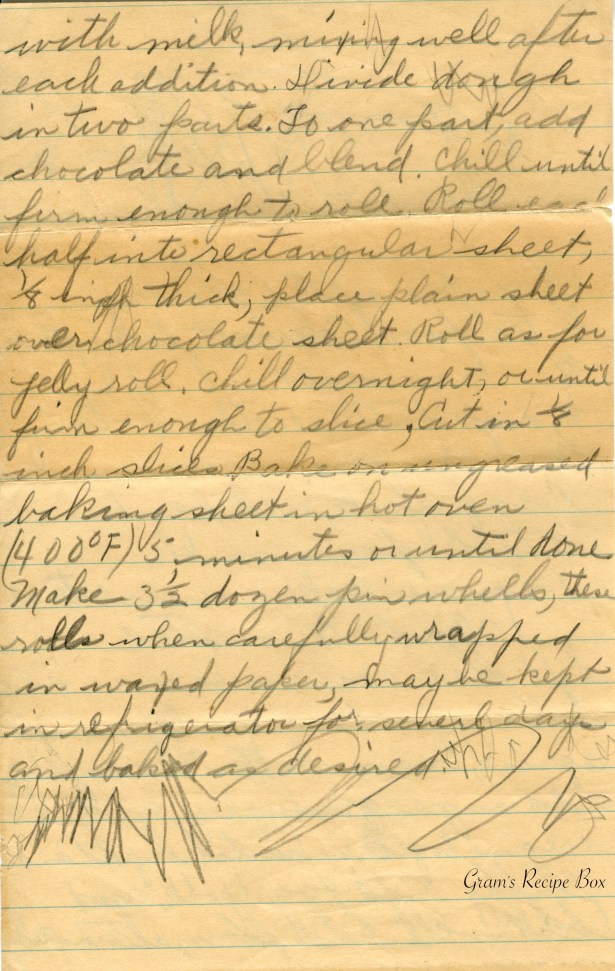 with milk, mixing well after
each addition. Divide dough
in two parts. To one part, add
chocolate and blend. Chill until
firm enough to roll. Roll each
half into rectangular sheet,
1/8 inch thick, place plain sheet
over chocolate sheet. Roll as for
jelly roll. Chill overnight, or until
firm enough to slice, Cut in 1/8
inch slices. Bake on ungreased
baking sheet in hot oven
(400°F) 5 minutes or until done
Make 3½ dozen pin whells, these
rolls when carefully wrapped
in waxed paper, may be kept
in refrigerator for severl days
and baked as desired.
Gram's Recipe Box